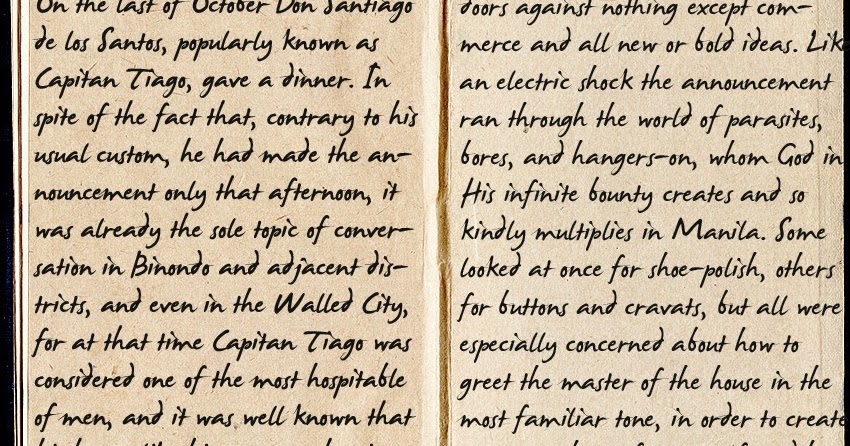 On the last of October Don Santiago
de los Santos, popularly known as
Capitan Tiago, gave a dinner. In
spite of the fact that, contrary to his
usual custom, he had made the an-
nouncement only that afternoon, it
was already the sole topic of conver-
sation in Binondo and adjacent dis-
tricts, and even in the Walled City,
for at that time Capitan Tiago was
considered one of the most hospitable
of men, and it was well known that
doors against nothing except com-
merce and all new or bold ideas. Lik
an electric shock the announcement
ran through the world of parasites,
bores, and hangers-on, whom God in
His infinite bounty creates and so
kindly multiplies in Manila. Some
looked at once for shoe-polish, others
for buttons and cravats, but all were
especially concerned about how to
greet the master of the house in the
most familiar tone, in order to create